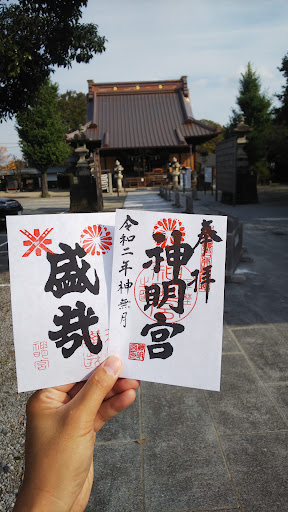 奉拝
神明宮
令和二年神無月
盛哉
神明宮